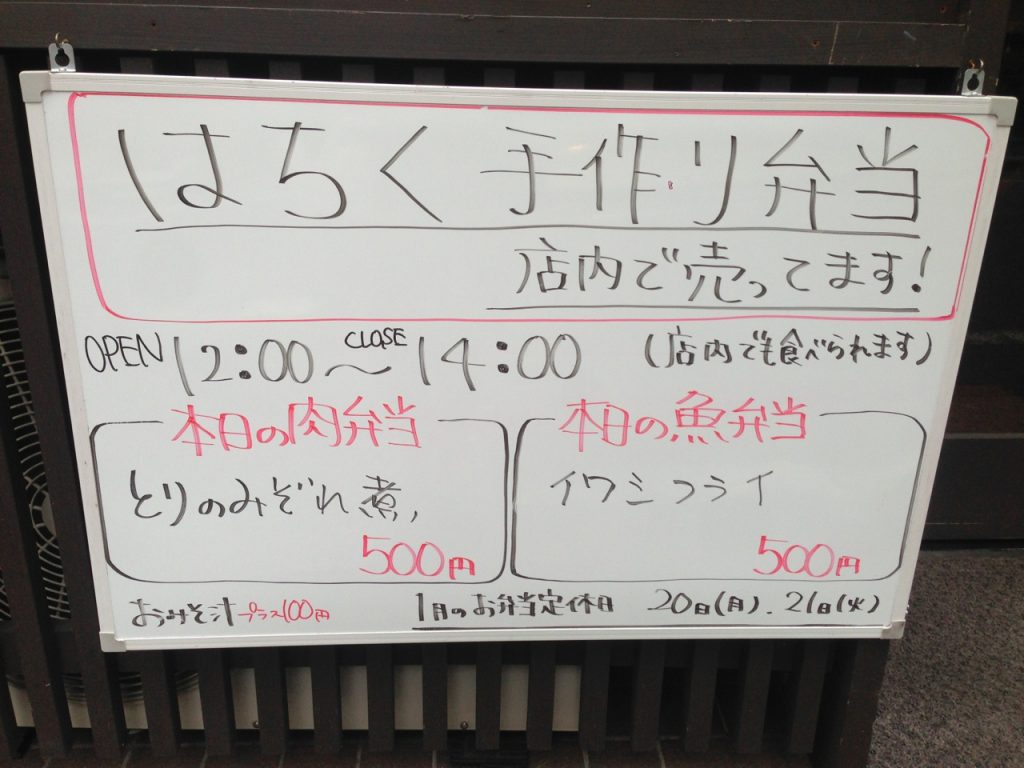 はちく 手作り弁当
店内で売ってます!
OPEN 12:00 〜 CLOSE 14:00 (店内でも食べられます)
本日の肉弁当
とりのみぞれ煮,
500円
本日の魚弁当
イワシフライ
500円
おみそ汁 プラス100円
1月のお弁当定休日 20日(月). 21日(火)